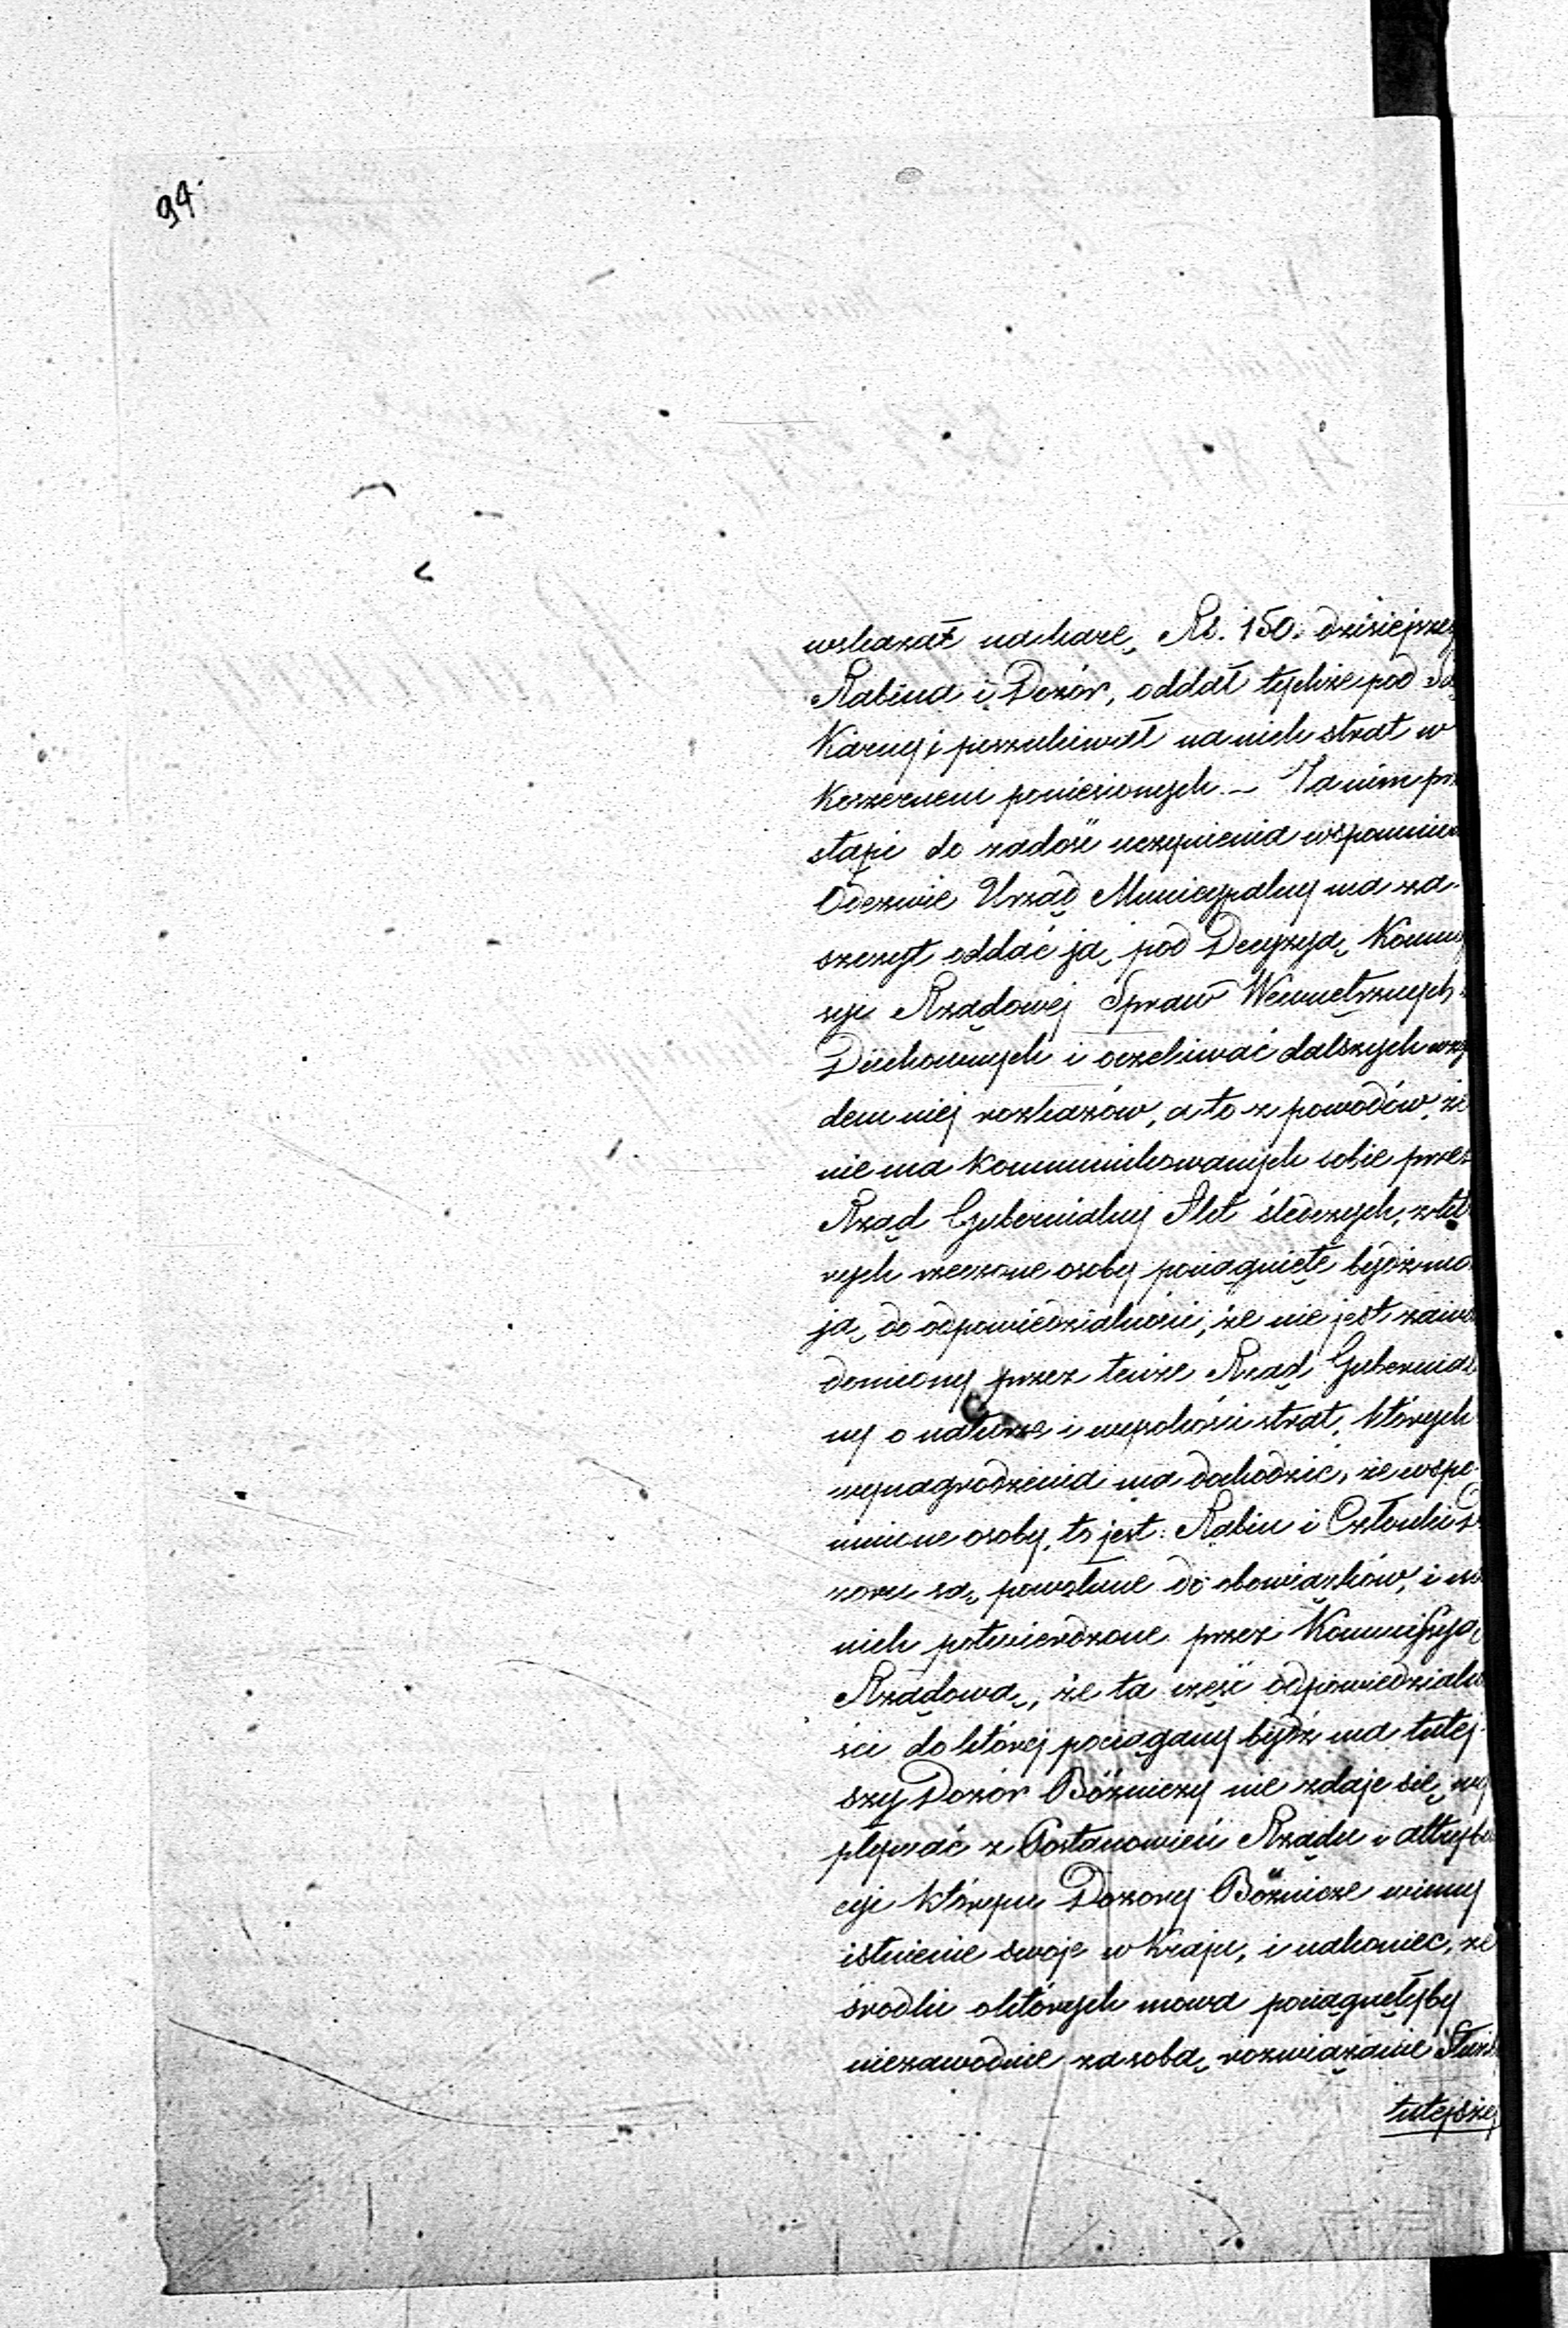 94.
wskazał na karę Rs. 150. dzisiejszeg
Rabina i Dozór, oddał tychże pod Są
Karny i poszukiwał na nich strat w
Koszernem poniesionych. – Zanim prz
stąpi do zadość uczynienia wspomnien
Odezwie Urząd Municypalny ma za-
szczyt oddać ją pod Decyzyą Kommi
syi Rządowej Spraw Wewnętrznych
Duchownych i oczekiwać dalszych wzg
dem niej rozkazów, a to z powodów, że
nie ma kommunikowanych sobie przez
Rząd Gubernialny Akt śledczych, z któ
rych rzeczone osoby pociągnięte bydź ma
ją do odpowiedzialności; że nie jest zawia
domiony przez tenże Rząd Gubernial
ny o naturze i wysokości strat, których
wynagrodzenia ma dochodzić, że wspo-
mnione osoby, to jest: Rabin i Członki D
zoru są powołane do obowiązków, i w
nich potwierdzone przez Kommissyą
Rządową, że ta część odpowiedzialno
ści do której pociągany bydź ma tutej-
szy Dozór Bóżniczy nie zdaje się wy
pływać z Postanowień Rządu i attrybu
cyi którym Dozory Bóżnicze winny
istnienie swoje w Kraju, i nakoniec, że
środki o których mowa pociągnęłyby
niezawodnie za sobą rozwiązanie
tutejszej